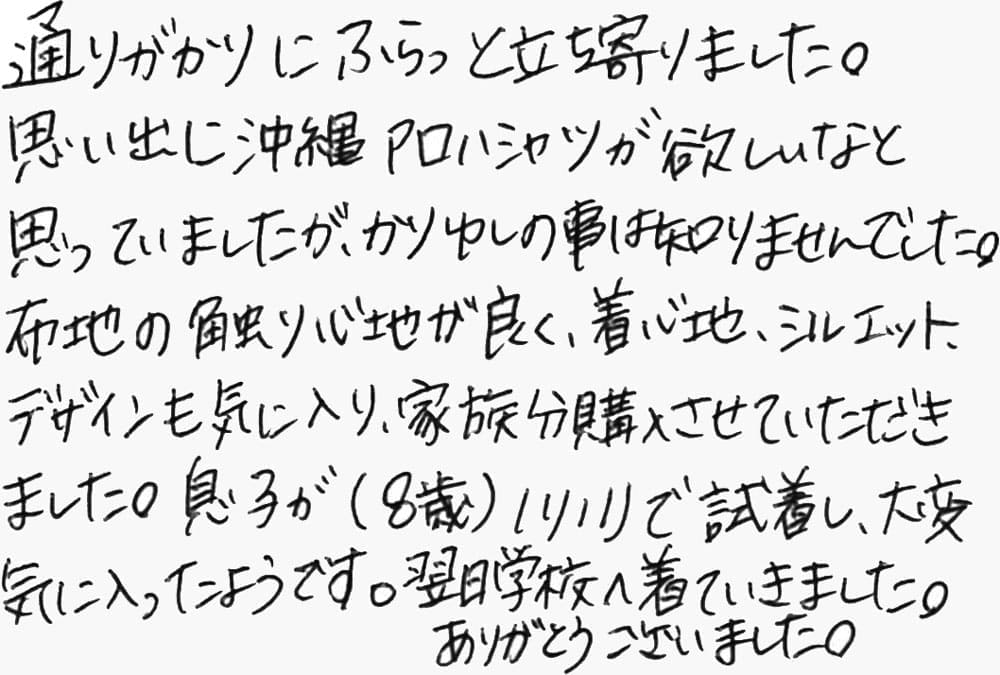 通りがかりにふらっと立ち寄りました。
思い出に沖縄アロハシャツが欲しいなと
思っていましたが、かりゆしの事は知りませんでした。
布地の触り心地が良く、着心地、シルエット、
デザインも気に入り、家族分購入させていただき
ました。息子が(8歳)ノリノリで試着し、大変
気に入ったようです。翌日学校へ着ていきました。
ありがとうございました。